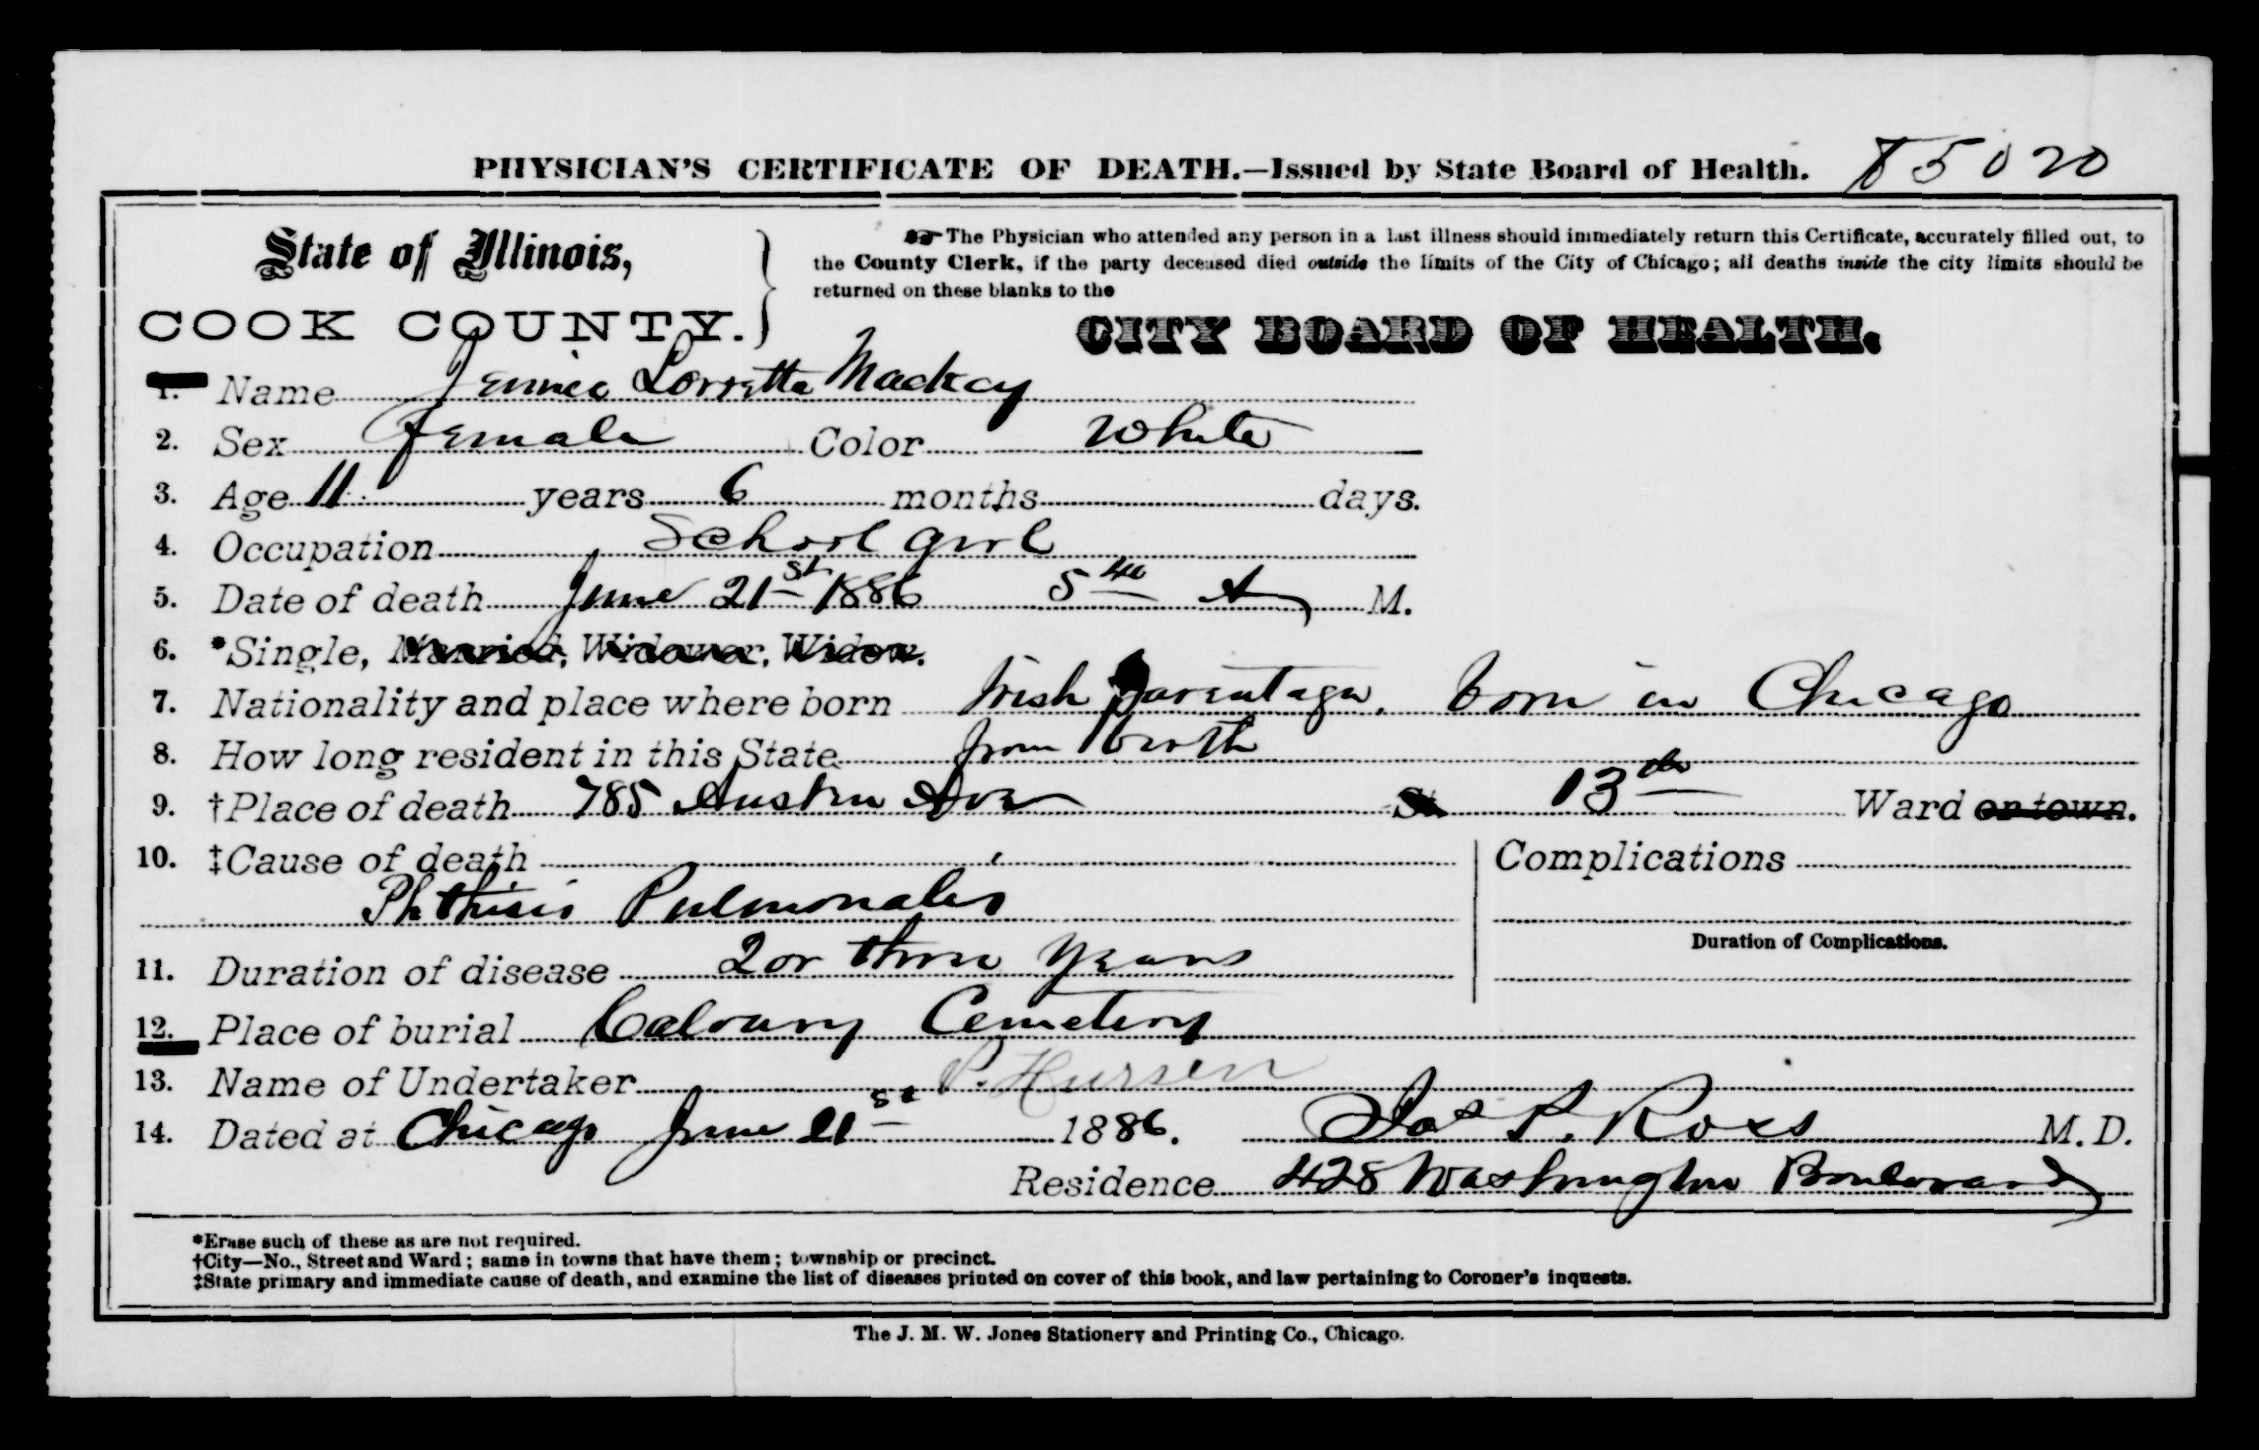 PHYSICIAN'S CERTIFICATE OF DEATH.—Issued by State Board of Health. 85020
State of Illinois,
COOK COUNTY.
The Physician who attended any person in a last illness should immediately return this Certificate, accurately filled out, to
the County Clerk, if the party deceased died outside the limits of the City of Chicago; all deaths inside the city limits should be
returned on these blanks to the
CITY BOARD OF HEALTH.
1. Name Jennie Lorretta Mackey
2. Sex Female Color White
3. Age 11 years 6 months days.
4. Occupation School girl
5. Date of death June 21st 1886 5 A M.
6. *Single, Married, Widower, Widow.
7. Nationality and place where born Irish Parentage, born in Chicago
8. How long resident in this State from birth
9. †Place of death 785 Austin Ave St 13th Ward or town.
10. ‡Cause of death
Phthisis Pulmonalis
Complications
Duration of Complications.
11. Duration of disease 2 or three years
12. Place of burial Calvary Cemetery
13. Name of Undertaker P. Hursen
14. Dated at Chicago June 21st 1886. Jos P. Ross M. D.
Residence 428 Washington Boulevard
*Erase such of these as are not required.
†City—No., Street and Ward; same in towns that have them; township or precinct.
‡State primary and immediate cause of death, and examine the list of diseases printed on cover of this book, and law pertaining to Coroner's inquests.
The J. M. W. Jones Stationery and Printing Co., Chicago.